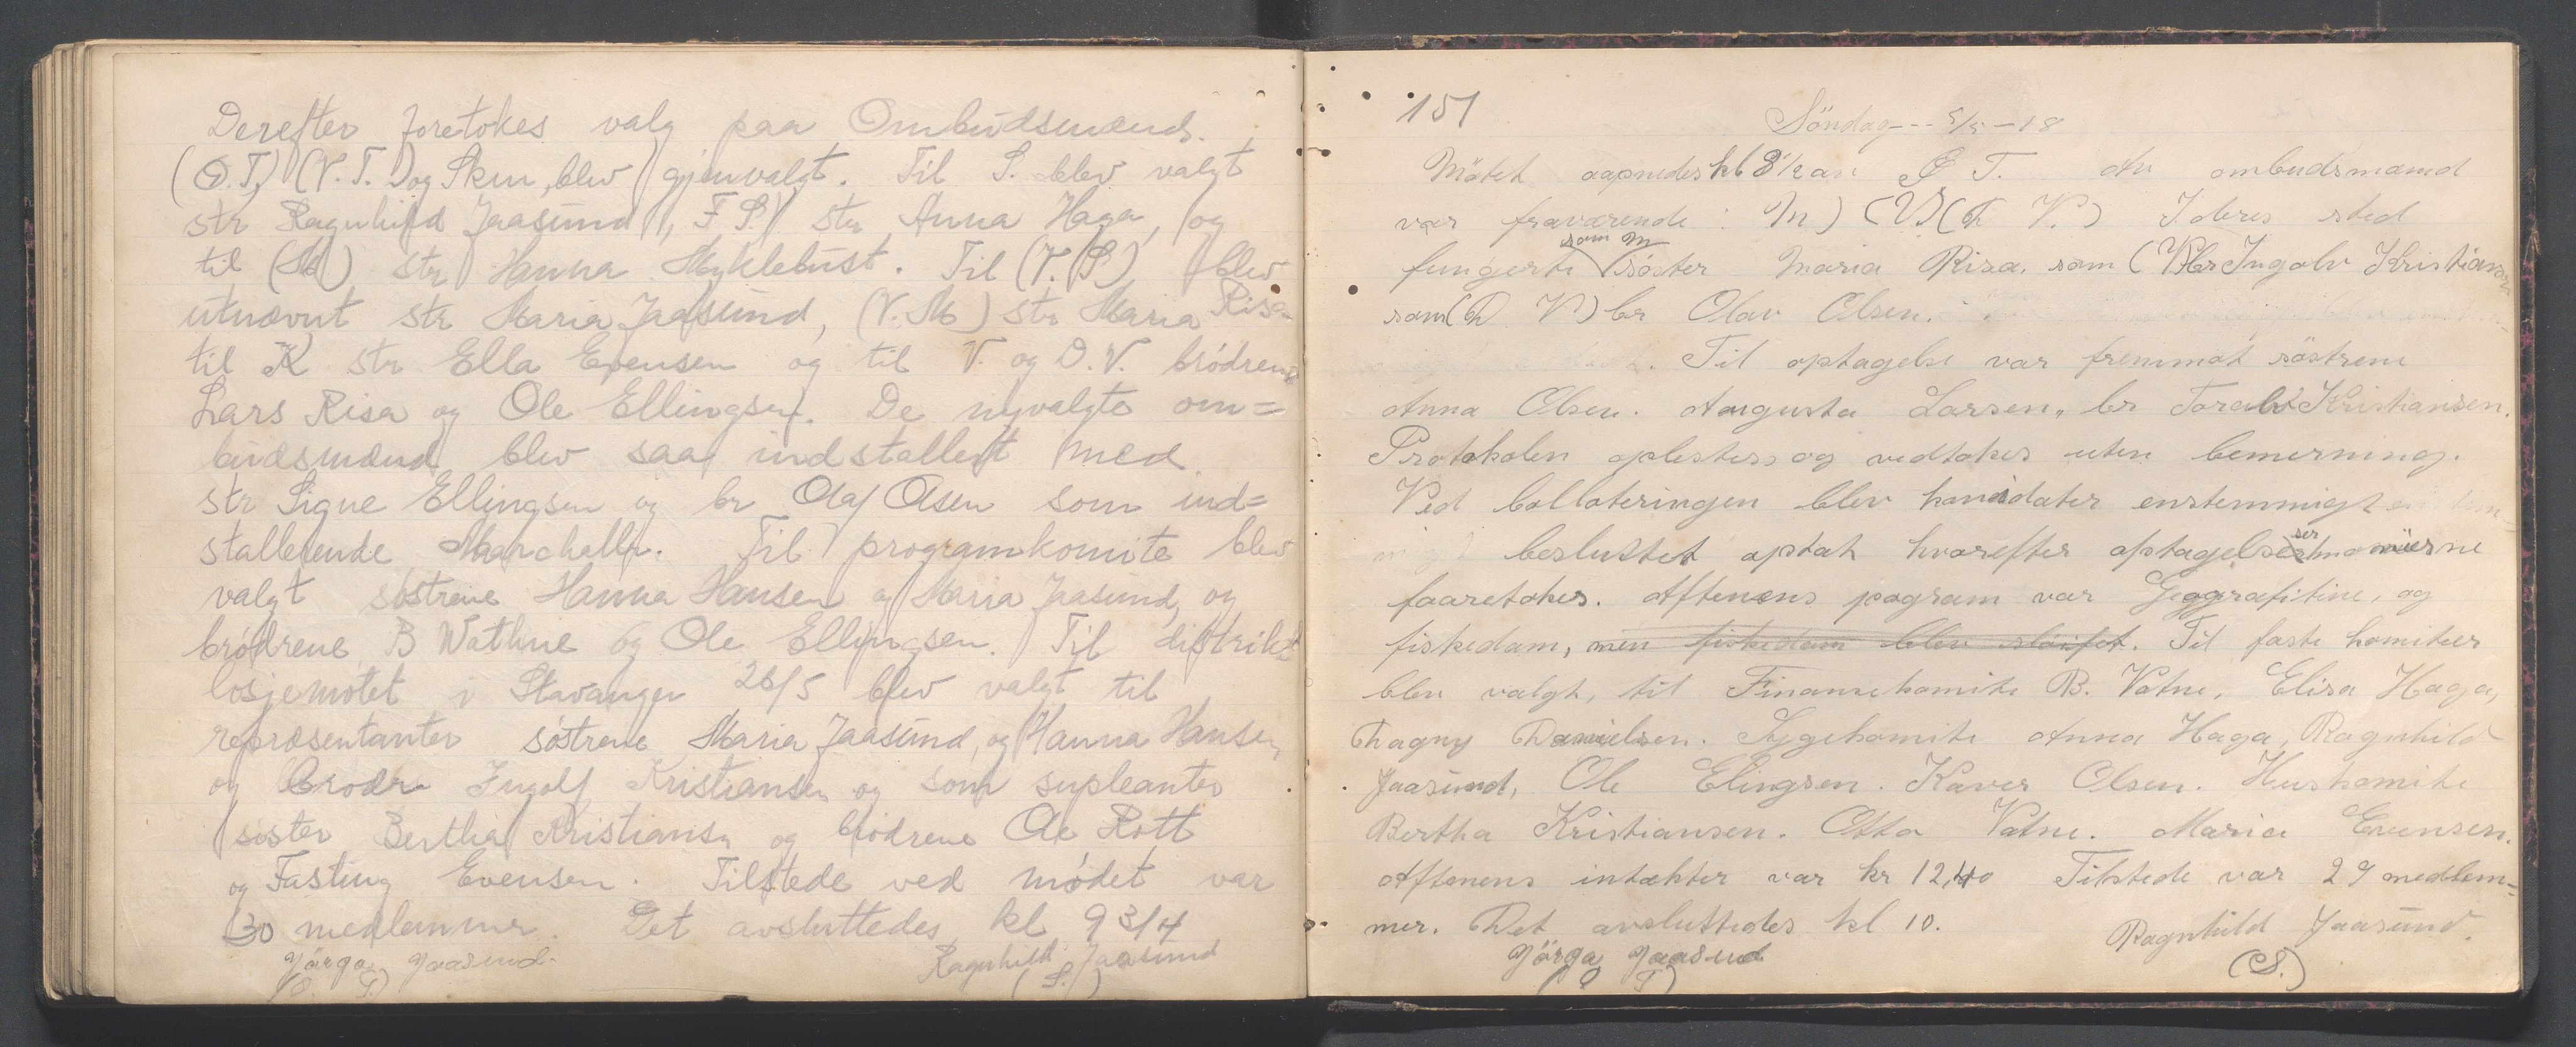 Derefter foretokes valg paa Ombudsmænd.
(O.T.) (V.T.) og Skm, blev gjenvalgt. Til S. blev valgt
str Ragnhild Jaasund, F.S. str Anna Haga, og
til (M) str Hanna Myklebust. Til (V.S) blev
utnævnt str Maria Jaasund, (V.M) str Maria Risa
til K str Ella Evensen og til V. og D.V. brödrene
Lars Risa og Ole Ellingsen. De nyvalgte om=
budsmænd blev saa indstallert med
str Signe Ellingsen og br Olaf Olsen som ind=
stallerende Marchaller. Til programkomite blev
valgt söstrene Hanna Hansen og Maria Jaasund, og
brödrene B Wathne og Ole Ellingsen. Til distrikt
losjemötet i Stavanger 26/5 blev valgt til
repræsentanter söstrene Maria Jaasund, og Hanna Hansen,
og brodr Ingolf Kristiansen og som supleanter
söster Bertha Kristiansn og brödrene Ole Rott
og Fasting Evensen. Tilstede ved mödet var
30 medlemmer. Det avsluttedes kl 9 3/4
Jörga Jaasund. Ragnhild Jaasund
(O. T.) (S.)
151
Söndag --- 5/5 - 18
Mötet aapnedes kl 8 1/2 av O T. Av ombudsmænd
var fraværende: M) (V) (D V.) I deres sted
fungerte som M söster Maria Risa. som (V) br Ingolv Kristiansen
som (D V) br Olav Olsen.
Til optagelse var fremmöt söstrene
Anna Olsen. Augusta Larsen, br Toralv Kristiansen.
Protokolen oplestes og vedtokes uten bemerning.
Ved balloteringen blev kanidater enstemmigt
besluttet optat hvorefter optagelsesermonierne
faaretokes. Aftenens pogram var Geggrafitine, og
fiskedam, men fiskedam blev slöifet. Til faste komiteer
blev valgt, til Finansekomite B. Vatne, Elisa Haga,
Dagny Danielsen. Sygekomite Anna Haga, Ragnhild
Jaasund, Ole Elingsen. Kaver Olsen. Huskomite
Bertha Kristiansen. Otto Vatne. Maria Evensen.
Aftenens intækter var kr 12,40 Tilstede var 29 medlem=
mer. Det avsluttedes kl 10.
Ragnhild Jaasund.
Jörga Jaasund (S.)
(O T)